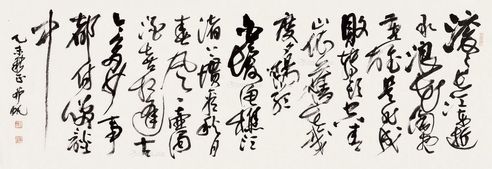 滚滚长江东逝
水浪花淘尽
英雄是非成
败转头空青
山依旧在几
度夕阳红
白发渔樵江
渚上惯看秋月
春风一壶酒
浊喜相逢古
今多少事
都付笑谈
中
乙未